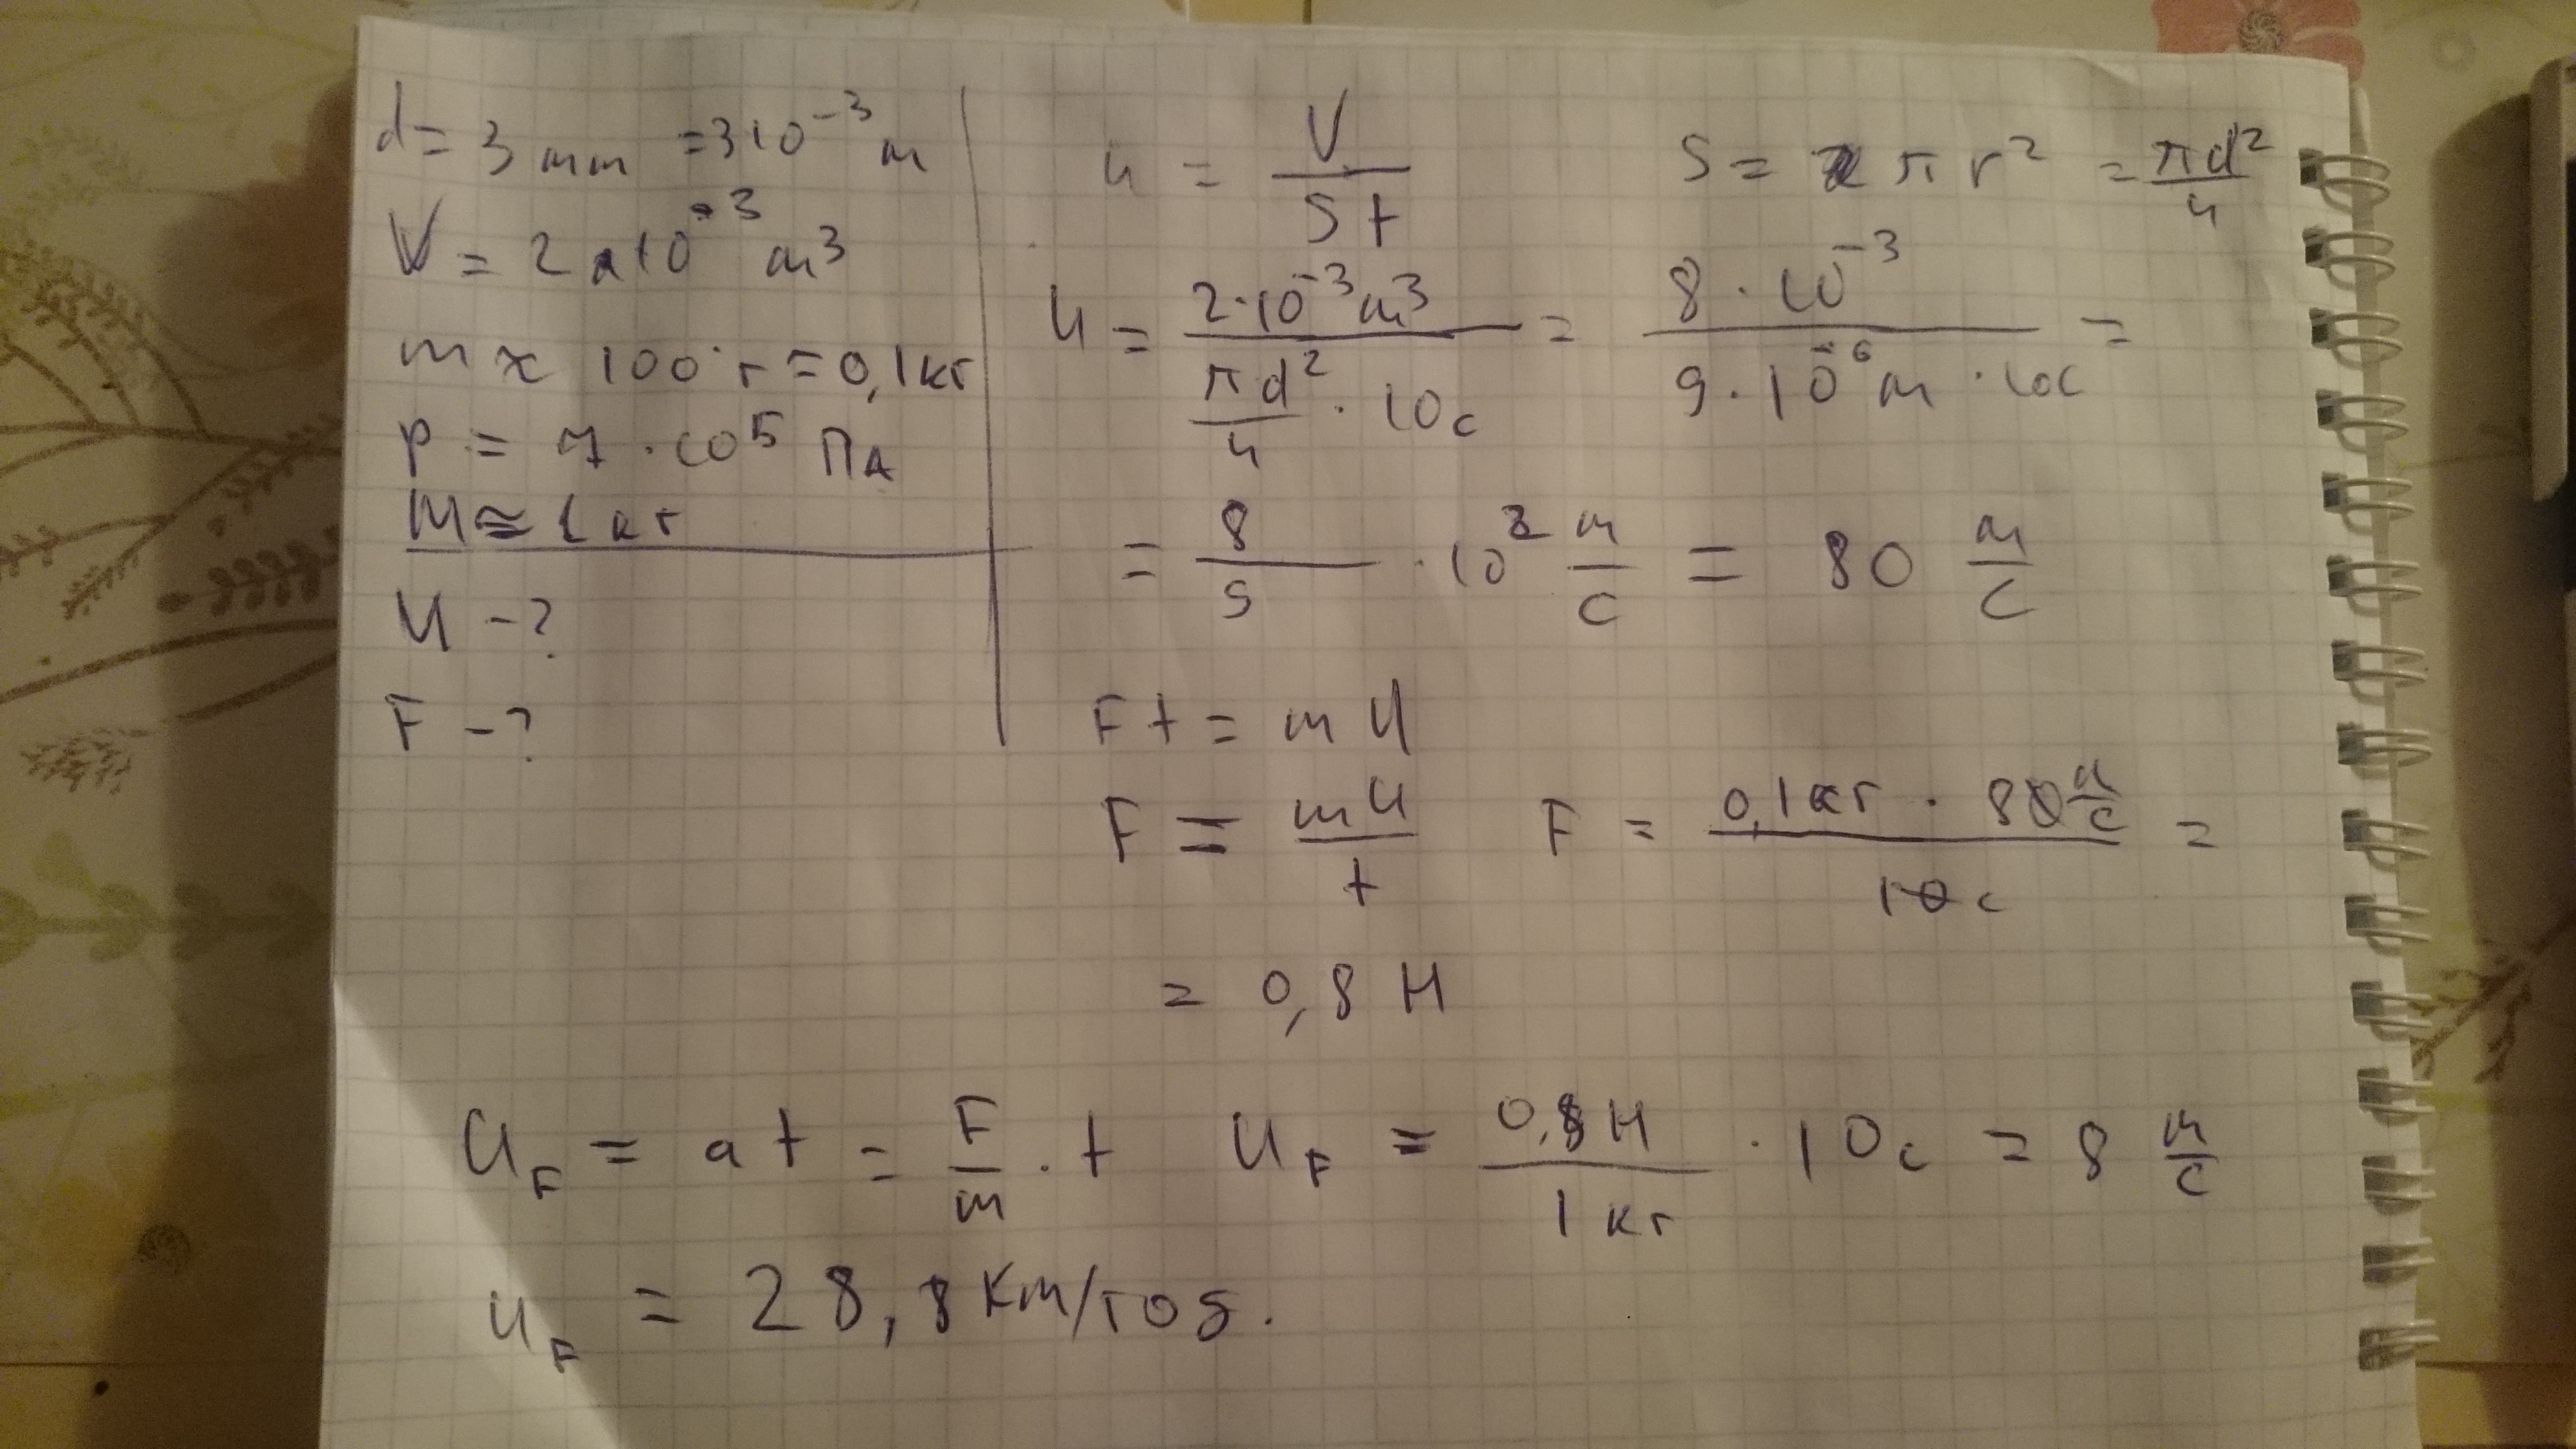 d = 3 mm = 3 10⁻³ m
V = 2 · 10⁻³ m³
m ≈ 100 г = 0,1 кг
p = 7 · 10⁵ Па
M ≅ 1 кг
u - ?
F - ?
u = V / S t
S = π r² = πd² / 4
u = 2·10⁻³ м³ / (πd² / 4 · 10 с) = 8 · 10⁻³ / 9 · 10⁻⁶ м · 10с =
= 8 / 9 · 10² м/с = 80 м/с
F t = m u
F = m u / t
F = 0,1 кг · 80 м/с / 10 с =
= 0,8 Н
u_F = a t = F / m · t
u_F = 0,8 Н / 1 кг · 10 с = 8 м/с
u_F = 28,8 км/год.